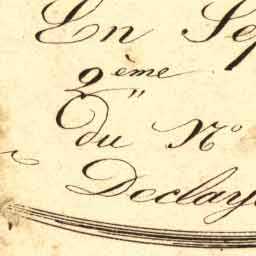 En Sep
2ème
Du No
Declay